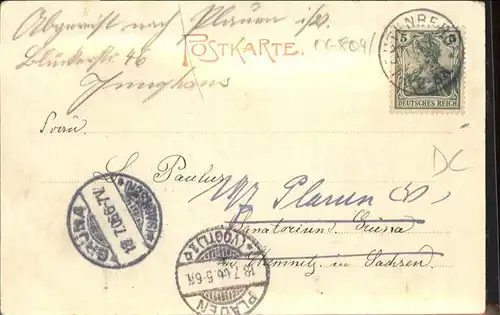 Abgereist nach Plauen i/V.
Blücherstr. 46
Junghans
POSTKARTE.
NÜRNBERG
5 5
DEUTSCHES REICH
Herrn
L. Paulus
Plauen (V)
Sanatorium Grüna
bei Chemnitz in Sachsen
DC
GRÜNA
(SACHSEN)
18.7.06.6-7V.
PLAUEN
(VOGTL)1
18.7.06.5-6N.